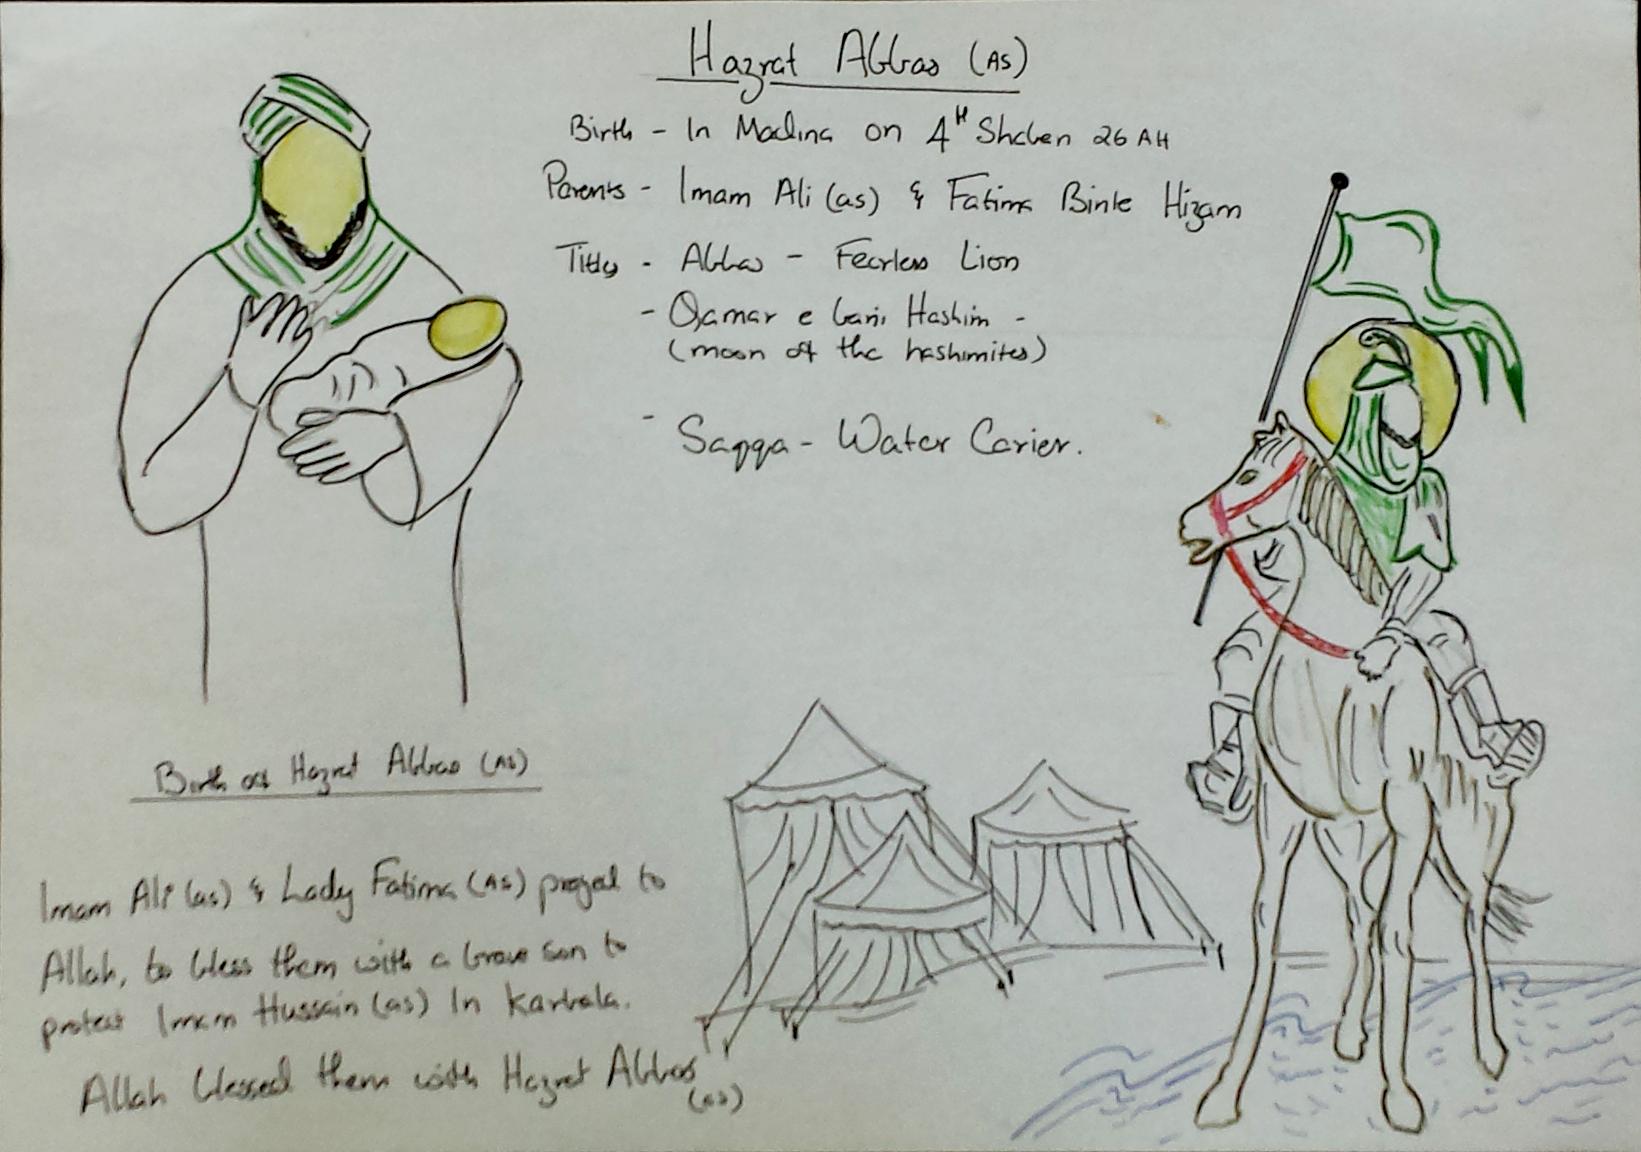 Hazrat Abbas (AS)
Birth - In Madina on 4th Shaben 26 AH
Parents - Imam Ali (as) & Fatima Binte Hizam
Titles - Abbas - Fearless Lion
- Qamar e bani Hashim -
(moon of the hashimites)
- Saqqa - Water Carier.
Birth of Hazrat Abbas (AS)
Imam Ali (as) & Lady Fatima (AS) prayed to
Allah, to bless them with a brave son to
protect Imam Hussain (as) In Karbala.
Allah blessed them with Hazrat Abbas
(as)